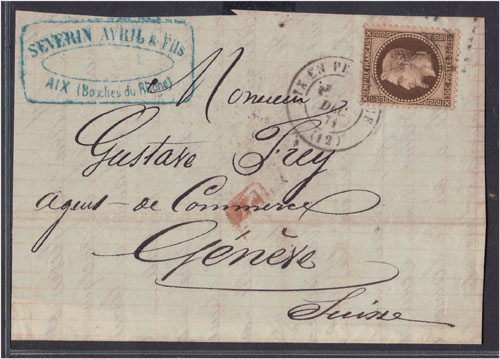 SEVERIN AVRIL & Fils
AIX (Bouches du Rhône)
AIX EN PR
DEC
71
(12)
Monsieur
Gustave Frey
Agent-de Commerce
Genève
Suisse